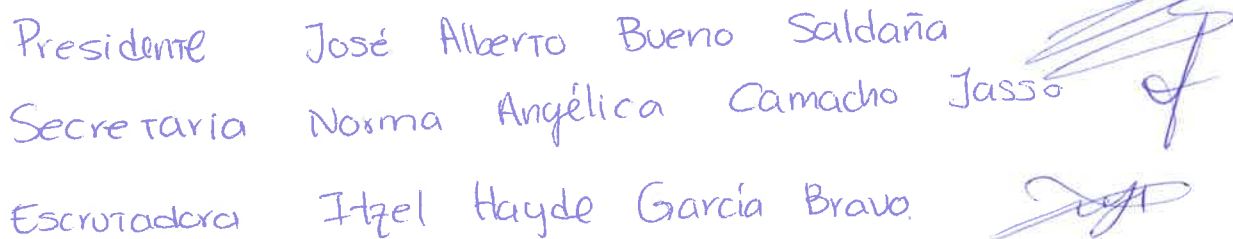 Presidente José Alberto Bueno Saldaña
Secretaria Norma Angélica Camacho Jasso
Escrutadora Itzel Hayde García Bravo.